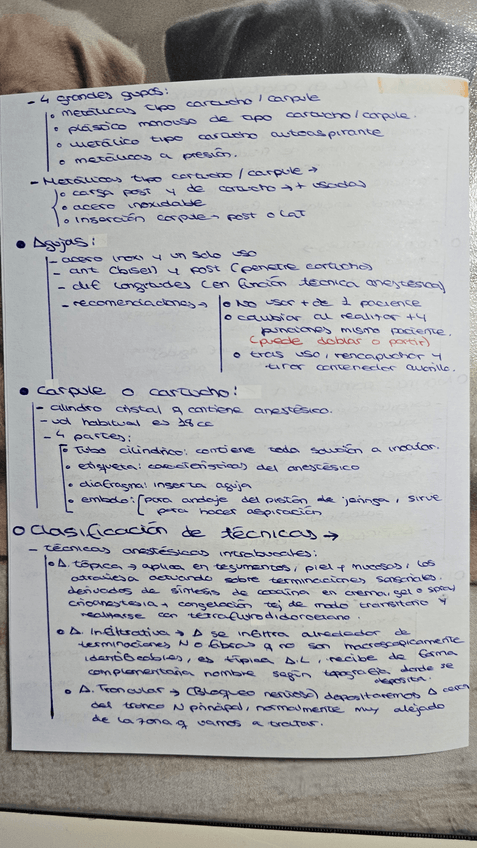 - 4 grandes grupos:
• metálicas tipo cartucho/carpule
• plástico monouso de tipo cartucho/carpule.
• metálico tipo cartucho autoaspirante
• metálicas a presión.
- Metálicas tipo cartucho/carpule →
• carga post y de cartucho → + usadas
• acero inoxidable
• Inserción carpule → post o Lat
• Agujas:
- acero inoxi y un solo uso
- ant (bisel) y post (penetre cartucho)
- dif longitudes (en función técnica anestésica)
- recomendaciones →
• No usar + de 1 paciente
• cambiar al realizar +4
punciones mismo paciente.
(puede doblar o partir)
• tras uso, rencapuchar y
tirar contenedor amarillo.
• Carpule o cartucho:
- cilindro cristal q contiene anestésico.
- vol habitual es 1'8 cc
- 4 partes:
• Tubo cilíndrico: contiene toda solución a inocular.
• etiqueta: características del anestésico
• diafragma: inserta aguja
• embolo: para anclaje del pistón de jeringa, sirve
para hacer aspiración
O Clasificación de técnicas →
- Técnicas anestésicas intrabucales:
• A. tópica → aplica en tegumentos, piel y mucosas, los
atraviesa actuando sobre terminaciones sensoriales.
derivados de síntesis de cocaína en crema, gel o spray
crioanestesia → congelación tej de modo transitorio y
realizarse con tetrafluorodicloroetano.
• A. Infiltrativa → A se infiltra alrededor de
terminaciones N o fibras q no son macroscópicamente
identificables, es típica A.L, recibe de forma
complementaria nombre según topografía donde se
deposita.
• A. Troncular → (Bloqueo nervioso) depositaremos A cerca
del tronco N principal, normalmente muy alejado
de la zona q vamos a tratar.